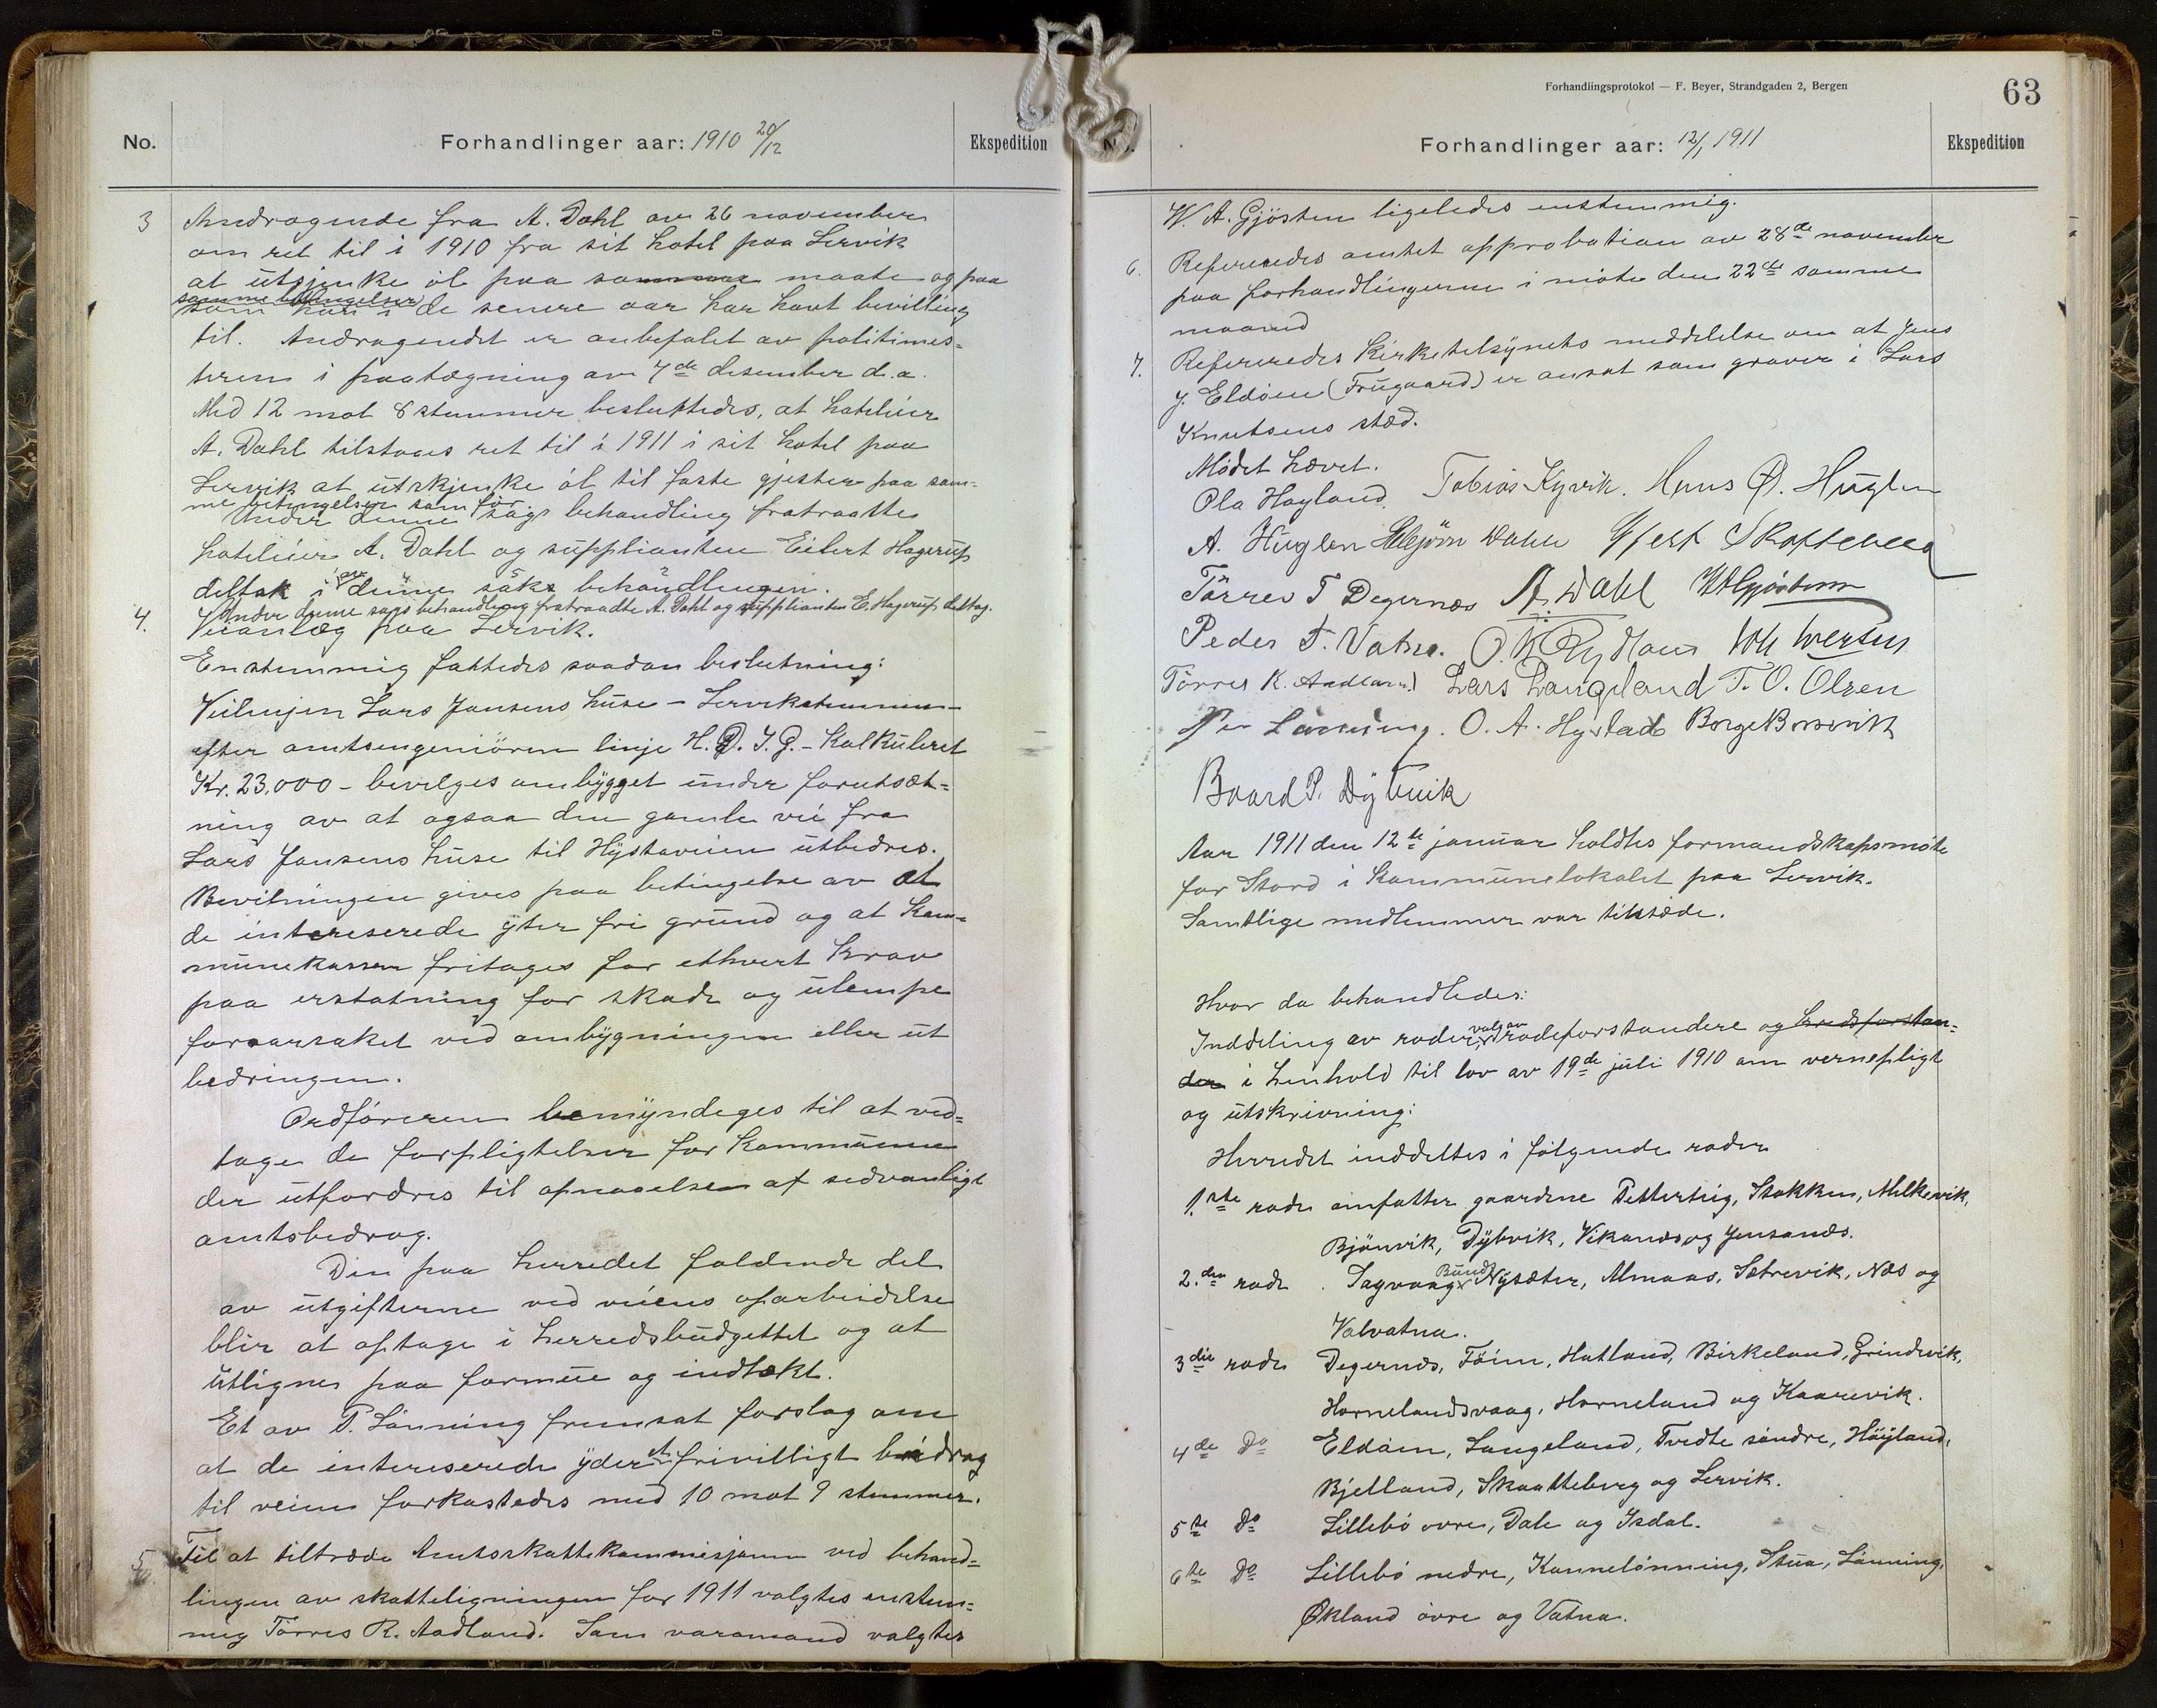 No.
Forhandlinger aar: 1910 20/12
Ekspedition
3 Andragende fra A. Dahl av 26 november
om ret til i 1910 fra sit hotel paa Lervik
at utsjenke öl paa samme maate og paa
samme betingelser
som han i de senere aar har havt bevilling
til. Andragendet er anbefalet av politimes-
teren i paategning av 7de desember d.a.
Med 12 mot 8 stemmer besluttedes, at hoteleier
A. Dahl tilstaaes ret til i 1911 i sit hotel paa
Lervik at utskjenke öl til faste gjester paa sam-
me betingelser som för
Under denne sags behandling fratraatte
hoteleier A. Dahl og supplianten Eilert Hagerup
deltok i denne saks behandlingen.
Under denne sags behandling fratraadte A. Dahl og supplianten E. Hagerup deltog.
4. Veianlæg paa Lervik.
Enstemmig fattedes saadan beslutning:
Veilinjen Lars Jansens huse - Lervikstunnen-
efter amtsengeniören linje H.D.I.G. - Kalkuleret
Kr. 23,000 - bevilges ombygget under forutsæt-
ning av at ogsaa den gamle vei fra
Lars Jansens huse til Hystaveien utbedres.
Bevilningen gives paa betingelse av at
de intereserede yter fri grund og at kom-
munekassen fritages for ethvert krav
paa erstatning for skade og ulempe
foraarsaket ved ombygningen eller ut
bedringen.
Ordföreren bemyndeges til at ved-
tage de forpligtelser for kommunene
der utfordres til opnaaelsen af sedvanligt
amtsbedrag.
Den paa herredet faldende del
av utgifterne ved veiens oparbeidelse
blir at optage i herredsbudgettet og at
utlignes paa formue og indtækt.
Et av P. Lönning fremsat forslag om
at de intereserede yder et frivilligt bidrag
til veien forkastedes med 10 mot 9 stemmer.
5. Til at tiltræde Amtsskattekommisjonen ved behand-
lingen av skatteligningen for 1911 valgtes enstem-
mig Törres K. Aadland. Som varamand valgtes
Forhandlingsprotokol — F. Beyer, Strandgaden 2, Bergen
63
Forhandlinger aar: 12/1 1911
Ekspedition
W. A. Gjösten ligeledes enstemmig.
6. Refereredes amtet approbation av 28de november
paa forhandlingerne i möte den 22de samme
maaned
7. Refereredes Kirketilsynets meddelelse om at Jens
J. Eldöien (Frugaard) er ansat som graver i Lars
Knutsens sted.
Mödet hævet.
Ola Hogland. Tobias Kyvik. Hans Ø. Huglen
A. Huglen
Törres T Degernes A. Dahl WAGjösteen
Peder T. Vatna. O. K. Rydland
Törres K. Aadland Lars Langeland T. O. Olsen
Per Lönning. O. A. Hystad Borge Borsvik
Baard P. Dybvik
Aar 1911 den 12te januar holdtes formandskapsmöte
for Stord i kommunelokalet paa Lervik.
Samtlige medlemmer var tilstede.
Hvor da behandledes:
Inddeling av roder, valg av rodeforstandere og kredsforstan-
der i henhold til lov av 19de juli 1910 om vernepligt
og utskrivning:
Herredet inddeltes i fölgende roder
1.ste rode omfatter gaardene Petterteig, Stokken, Melkevik,
Björnvik, Dybvik, Vikanes og Jensanes.
2.den rode Sagvaag, Bund, Nysæter, Almaas, Sætrevik, Næs og
Valvatna.
3die rode Degernes, Töien, Hatland, Birkeland, Grindevik,
Hornelandsvaag, Horneland og Kaarevik.
4de Do Eldöien, Langeland, Tvedte söndre, Höyland,
Bjelland, Skaatteberg og Lervik.
5te Do Lillebö övre, Dale og Isdal.
6te Do Lillebö nedre, Kannelönning, Stua, Lönning,
Økland övre og Vatna.